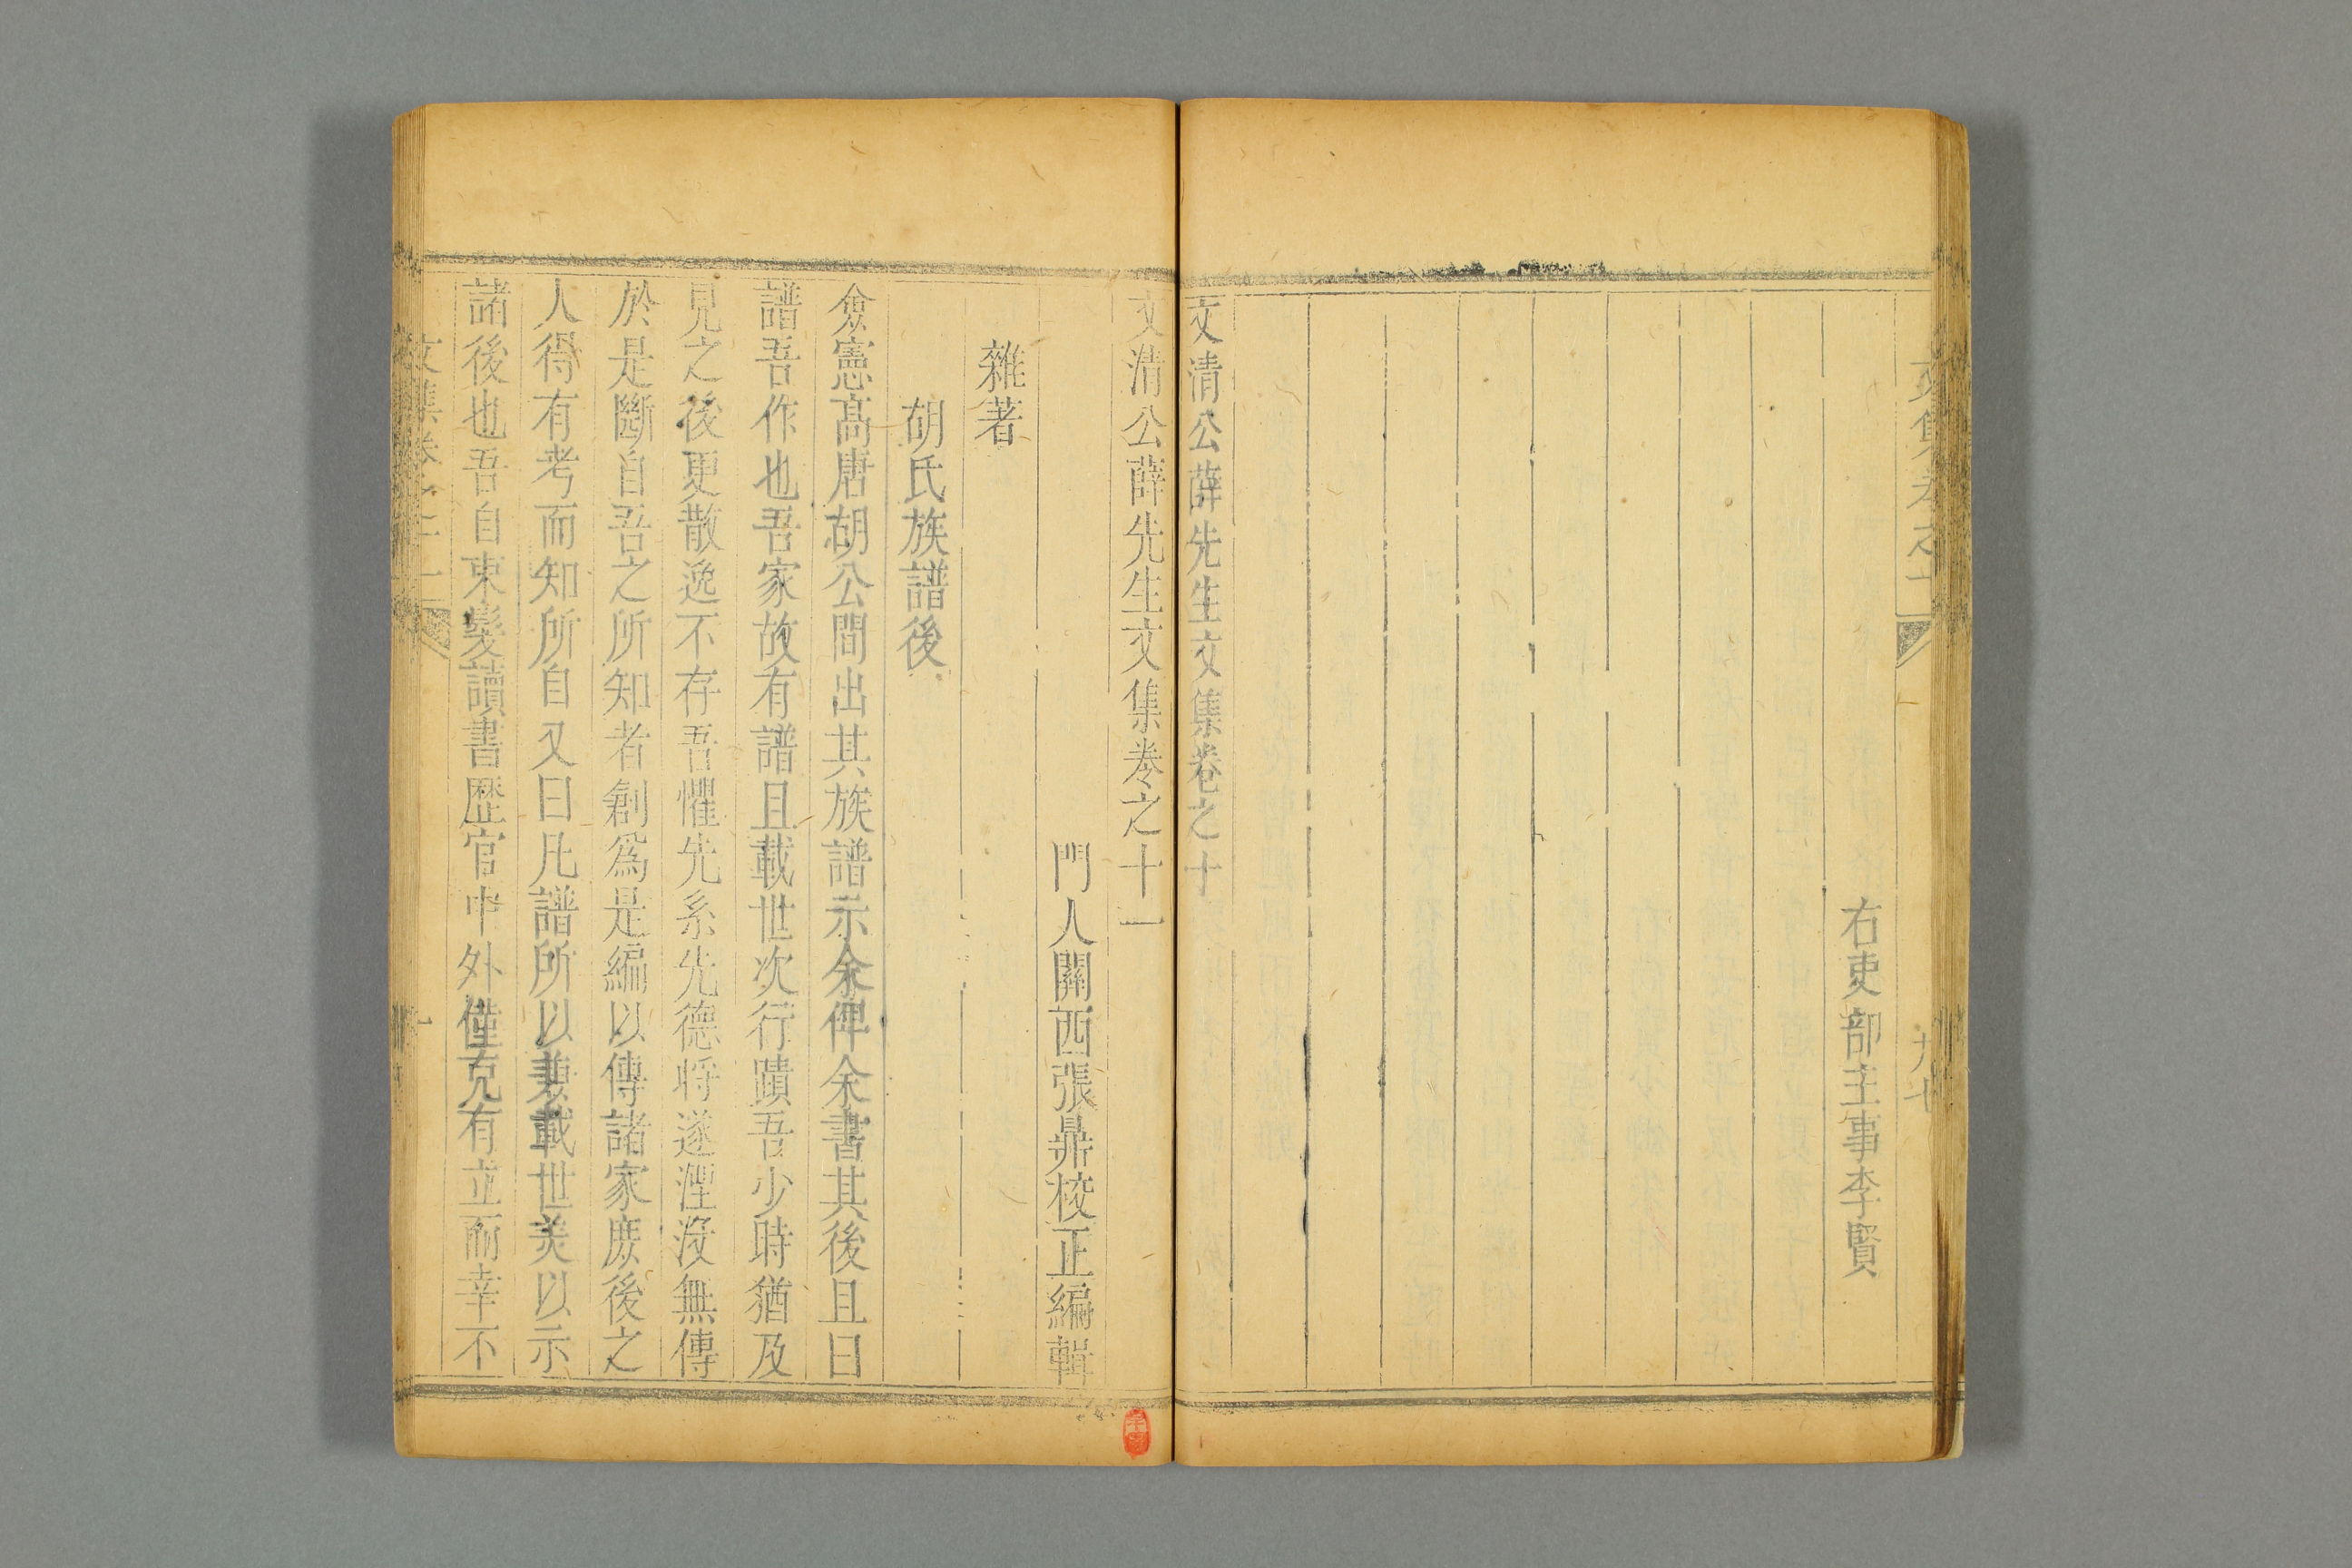 右吏部主事李賢
文清公薛先生文集卷之十
文清公薛先生文集卷之十一
門人關西張鼎校正編輯
雜著
胡氏族譜後
僉憲髙唐胡公間出其族譜示余俾余書其後且曰
譜吾作也吾家故有譜且載世次行蹟吾少時猶及
見之後更散逸不存吾懼先系先德将遂湮没無傳
於是斷自吾之所知者創爲是編以傳諸家庶後之
人得有考而知所自又曰凡譜所以兼載世美以示
諸後也吾自束髪讀書歴官中外僅克有立而幸不
文集卷之十一
一